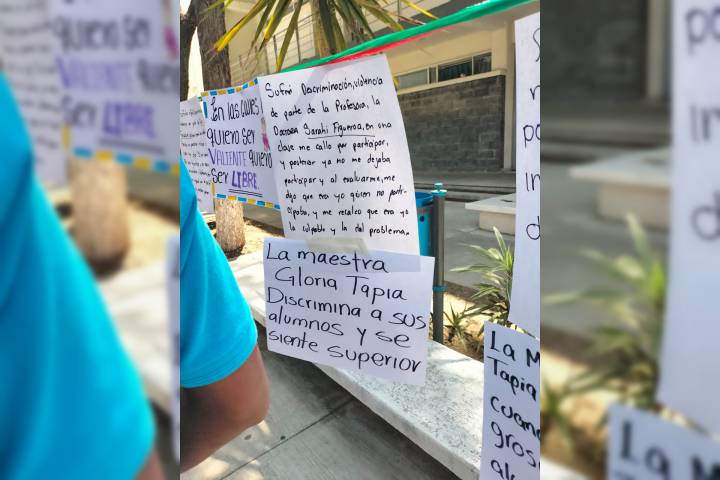 En las calles
quiero ser
VALIENTE quiero
ser LIBRE.
Sufrí Discriminación, violencia
de parte de la Profesora, la
Doctora Sarahi Figueroa, en una
clase me callo por participar,
y posterior ya no me dejaba
participar y al evaluarme, me
dijo que era yo quien no parti-
cipaba, y me recalco que era yo
la culpable y la del problema.
La maestra
Gloria Tapia
Discrimina a sus
alumnos y se
siente superior
La M
Tapia
cuan
gros
al